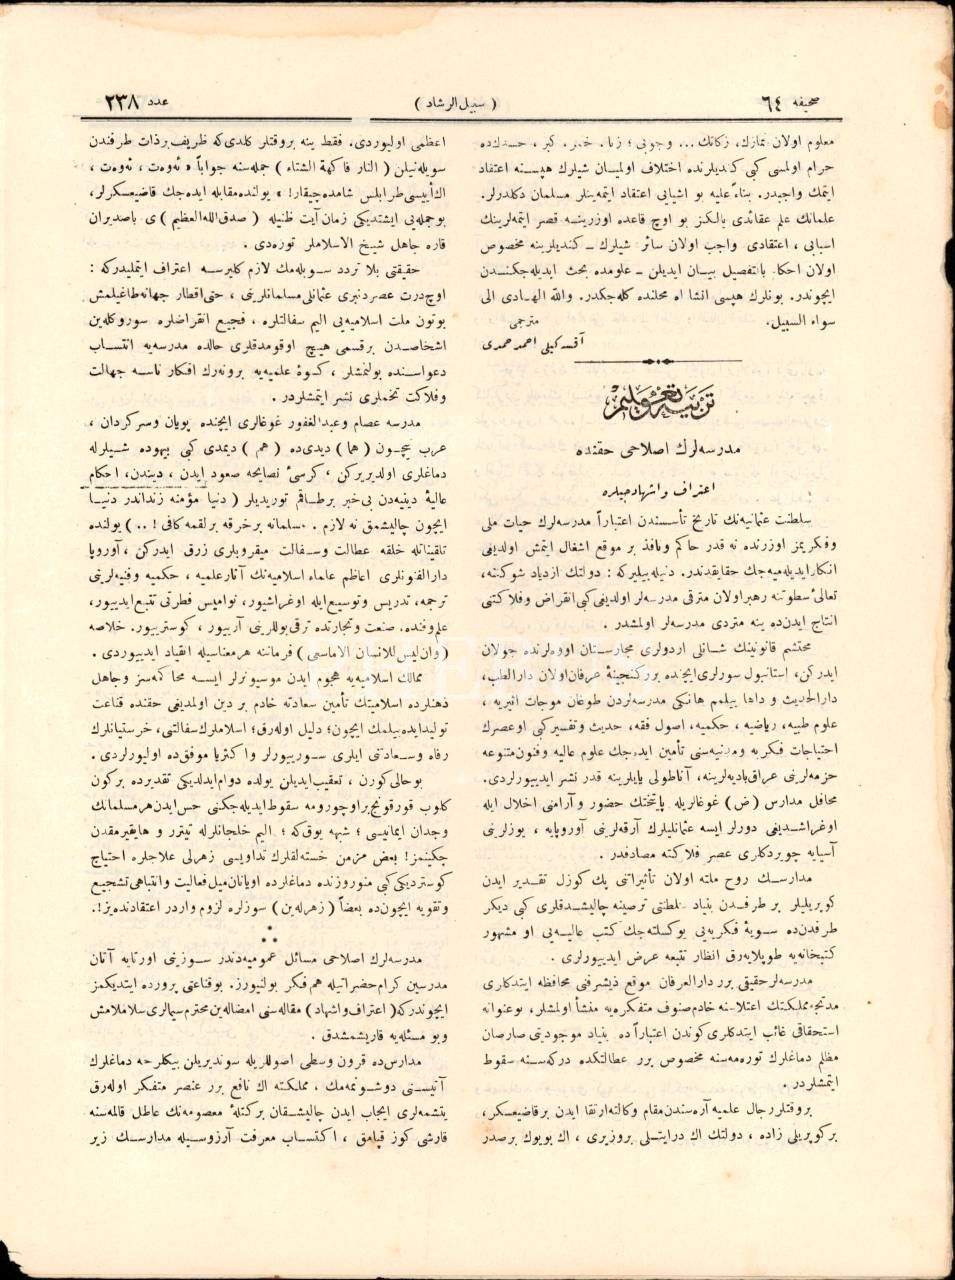 صحیفه ٦٤
( سبیل الرشاد )
عدد ٢٣٨
معلوم اولان نمازك، زكاتك... وجوبی ؛ زنا. خمر. كبر ، حسدكده
حرام اولمسی كبی كندیلرنده اختلاف اولمیان شیلرك هپسنه اعتقاد
ایتمك واجبدر. بناءً علیه بو اشیایی اعتقاد ایتمه‌ینلر مسلمان دكلدرلر.
علمانك علم عقائدی یالكز بو اوچ قاعده اوزرینه قصر ایتمه‌لرینك
اسبابی ، اعتقادی واجب اولان سائر شیلرك ــ كندیلرینه مخصوص
اولان احكا. بالتفصیل بیان ایدیلن ــ علومده بحث ایدیله‌جكندن
ایچوندر. بونلرك هپسی انشا اه محلنده كله‌جكدر. والله الهادی الی
سواء السبیل.
مترجمی
آقسكیلی احمد حمدی
تربیه و تعلیم
مدرسه‌لرك اصلاحی حقنده
اعتراف و اشهاد جیلره
سلطنت عثمانیه‌نك تاریخ تأسسندن اعتباراً مدرسه‌لرك حیات ملی
وفكریمز اوزرنده نه قدر حاكم ونافذ بر موقع اشغال ایتمش اولدیغی
انكار ایدیله‌میه‌جك حقایقدندر. دنیله بیلیركه : دولتك ازدیاد شوكتنه،
تعالئ سطوتنه رهبر اولان مترقی مدرسه‌لر اولدیغی كبی انقراض وفلاكتی
انتاج ایدن‌ده ینه متردی مدرسه‌لر اولمشدر .
محتشم قانونینك شانلی اردولری مجارستان اووه‌لرنده جولان
ایدركن، استانبول سورلری ایچنده بررگنجینهٔ عرفان اولان دارالطب،
دارالحدیث و داها بیلمم هانكی مدرسه‌لردن طوغان موجات اثیریه ،
علوم طبیه، ریاضیه ، حكمیه، اصول فقه، حدیث وتفسیر كبی اوعصرك
احتیاجات فكریه ومدنیه‌سنی تأمین ایدرجك علوم عالیه وفنون متنوعه
حزمه‌لرینی عراق بادیه‌لرینه، آناطولی یایلرینه قدر نشر ایدییورلردی.
محافل مدارس (ض) غوغالریله پایتختك حضور و آرامنی اخلال ایله
اوغراشدیغی دورلر ایسه عثمانلیلرك آرقه‌لرینی آوروپایه ، یوزلرینی
آسیایه چویردكلری عصر فلاكته مصادفدر .
مدارسك روح ملته اولان تأثیراتنی پك كوزل تقدیر ایدن
كوپریلیلر بر طرفدن بنیاد سلطنتی ترصینه چالیشدقلری كبی دیگر
طرفدن‌ده سویهٔ فكریه‌یی یوكسلته‌جك كتب عالیه‌یی او مشهور
كتبخانه‌یه طوپلایه‌رق انظار تتبعه عرض ایدییورلردی .
مدرسه‌لر حقیقی برر دارالعرفان موقع ذیشرفنی محافظه ایتدكاری
مدتجه مملكتك اعتلاسنه خادم صنوف متفكره‌یه منشأ اولمشلر، بو عنوانه
استحقاقی غائب ایتدكلری كوندن اعتباراً ده بنیاد موجودیتی صارصان
مظلم دماغلرك توره‌مه‌سنه مخصوص برر عطالتكده دركه‌سنه سقوط
ایتمشلردر .
بروقتلر رجال علمیه آره‌سندن مقام وكالته ارتقا ایدن بر قاضیعسكر،
بر كوپریلی زاده ، دولتك اك درایتلی بر وزیری ، اك بویوك بر صدر
اعظمی اولیوردی. فقط ینه بروقتلر كلدی‌كه ظریف برذات طرفندن
سویله‌نیلن ( النار فاكهة الشتاء ) جمله‌سنه جواباً « ئه‌وه‌ت ، ئه‌وه‌ت ،
اك أییسی طرابلس شامده‌جیقار! » یولنده مقابله ایده‌جك قاضیعسكرلر،
بوجمله‌یی ایشتدیكی زمان آیت ظنیله ( صدق الله العظیم ) ی باصدیران
قاره جاهل شیخ الاسلاملر توره‌دی .
حقیقتی بلا تردد سویله‌مك لازم كلیرسه اعتراف ایتملیدركه :
اوچ درت عصردنبری عثمانلی مسلمانلرینی ، حتی اقطار جهانه‌طاغیلمش
بوتون ملت اسلامیه‌یی الیم سفالتلره ، فجیع انقراضلره سوروكله‌ین
اشخاصدن برقسمی هیچ اوقومدقلری حالده مدرسه‌یه انتساب
دعواسنده بولنمشلر ، كسوهٔ علمیه‌یه برونه‌رك افكار ناسه جهالت
وفلاكت تخملری نشر ایتمشلردر .
مدرسه عصام وعبدالغفور غوغالری ایچنده پویان وسركردان ،
عرب نیچون ( هما ) دیدی‌ده ( هم ) دیمدی كبی بیهوده شیلرله
دماغلری اولدیریركن ، كرسئ نصایحه صعود ایدن ، دیندن، احكام
عالیهٔ دینیه‌دن بی خبر برطاقم توریدیلر ( دنیا مؤمنه زنداندر دنیا
ایچون چالیشمق نه لازم . مسلمانه برخرقه برلقمه كافی ! .. ) یولنده
تلقیناتله خلقه عطالت وسفالت میقروبلری زرق ایدركن ، آوروپا
دارالفنونلری اعاظم علماء اسلامیه‌نك آثار علمیه ، حكمیه وفنیه‌لرینی
ترجمه، تدریس وتوسیع ایله اوغراشیور، نوامیس فطرتی تتبع ایدییور،
علم وفنده. صنعت وتجارتده ترقی یوللرینی آرییور ، كوستریبور. خلاصه
( وان لیس للانسان الاماسعی ) فرماننه هرمعناسیله انقیاد ایدییوردی .
ممالك اسلامیه‌یه هجوم ایدن موسیونرلر ایسه محاكمه‌سز وجاهل
ذهنلرده اسلامیتك تأمین سعادته خادم بر دین اولمدیغی حقنده قناعت
تولیدایده‌بیلمك ایچون؛ دلیل اوله‌رق؛ اسلاملرك سفالتنی ، خرستیانلرك
رفاه وسعادتنی ایلری سورییورلر وا كثریا موفق‌ده اولیورلردی .
بو حالی كورن ، تعقیب ایدیلن یولده دوام ایدلدیكی تقدیرده بركون
كلوب قورقونج براوچورومه سقوط ایدیله‌جكنی حس ایدن هرمسلمانك
وجدان ایمانیسی ؛ شبهه یوق‌كه ؛ الیم خلجانلرله تیترر و هایقیرمقدن
چكینمز! بعض مزمن خسته‌لقلرك تداویسی زهرلی علاجلره احتیاج
كوستردیكی كبی منور وزنده دماغلرده اویانان میل فعالیت وانتباهی تشجیع
وتقویه ایچون‌ده بعضاً ( زهرله‌ین ) سوزلره لزوم واردر اعتقادنده‌یز!.
* * *
مدرسه‌لرك اصلاحی مسائل عمومیه‌دندر سوزینی اورتایه آتان
مدرسین كرام حضراتیله هم فكر بولنیورز. بوقناعتی پرورده ایتدیكمز
ایچوندركه( اعتراف واشهاد ) مقاله‌سنی امضاله‌ین محترم سیمالری سلاملامش
وبو مسئله‌یه قاریشمشدق .
مدارس‌ده قرون وسطی اصوللریله سوندیریلن بیكلرجه دماغلرك
آتیسنی دوشونمه‌مك ، مملكته اك نافع برر عنصر متفكر اوله‌رق
یتشمه‌لری ایجاب ایدن چالیشقان بركتلهٔ معصومه‌نك عاطل قالمه‌سنه
قارشی كوز قپامق ، اكتساب معرفت آرزوسیله مدارسك زیر